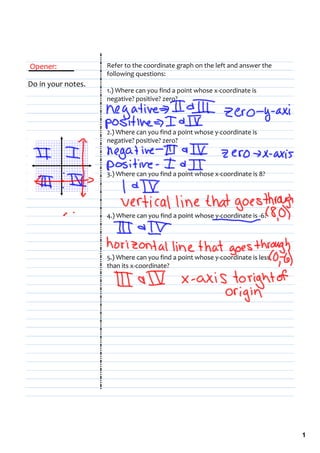 Opener:
Do in your notes.
Refer to the coordinate graph on the left and answer the
following questions:
1.) Where can you find a point whose x-coordinate is
negative? positive? zero?
negative⇒ II & III zero-y-axi
positive⇒ I & IV
2.) Where can you find a point whose y-coordinate is
negative? positive? zero?
negative- III & IV zero→x-axis
positive- I & II
II I
III IV
3.) Where can you find a point whose x-coordinate is 8?
I & IV
vertical line that goes through
(8,0)
4.) Where can you find a point whose y-coordinate is -6?
III & IV
horizontal line that goes through
(0,-6)
5.) Where can you find a point whose y-coordinate is less
than its x-coordinate?
III & IV x-axis to right of
origin
1